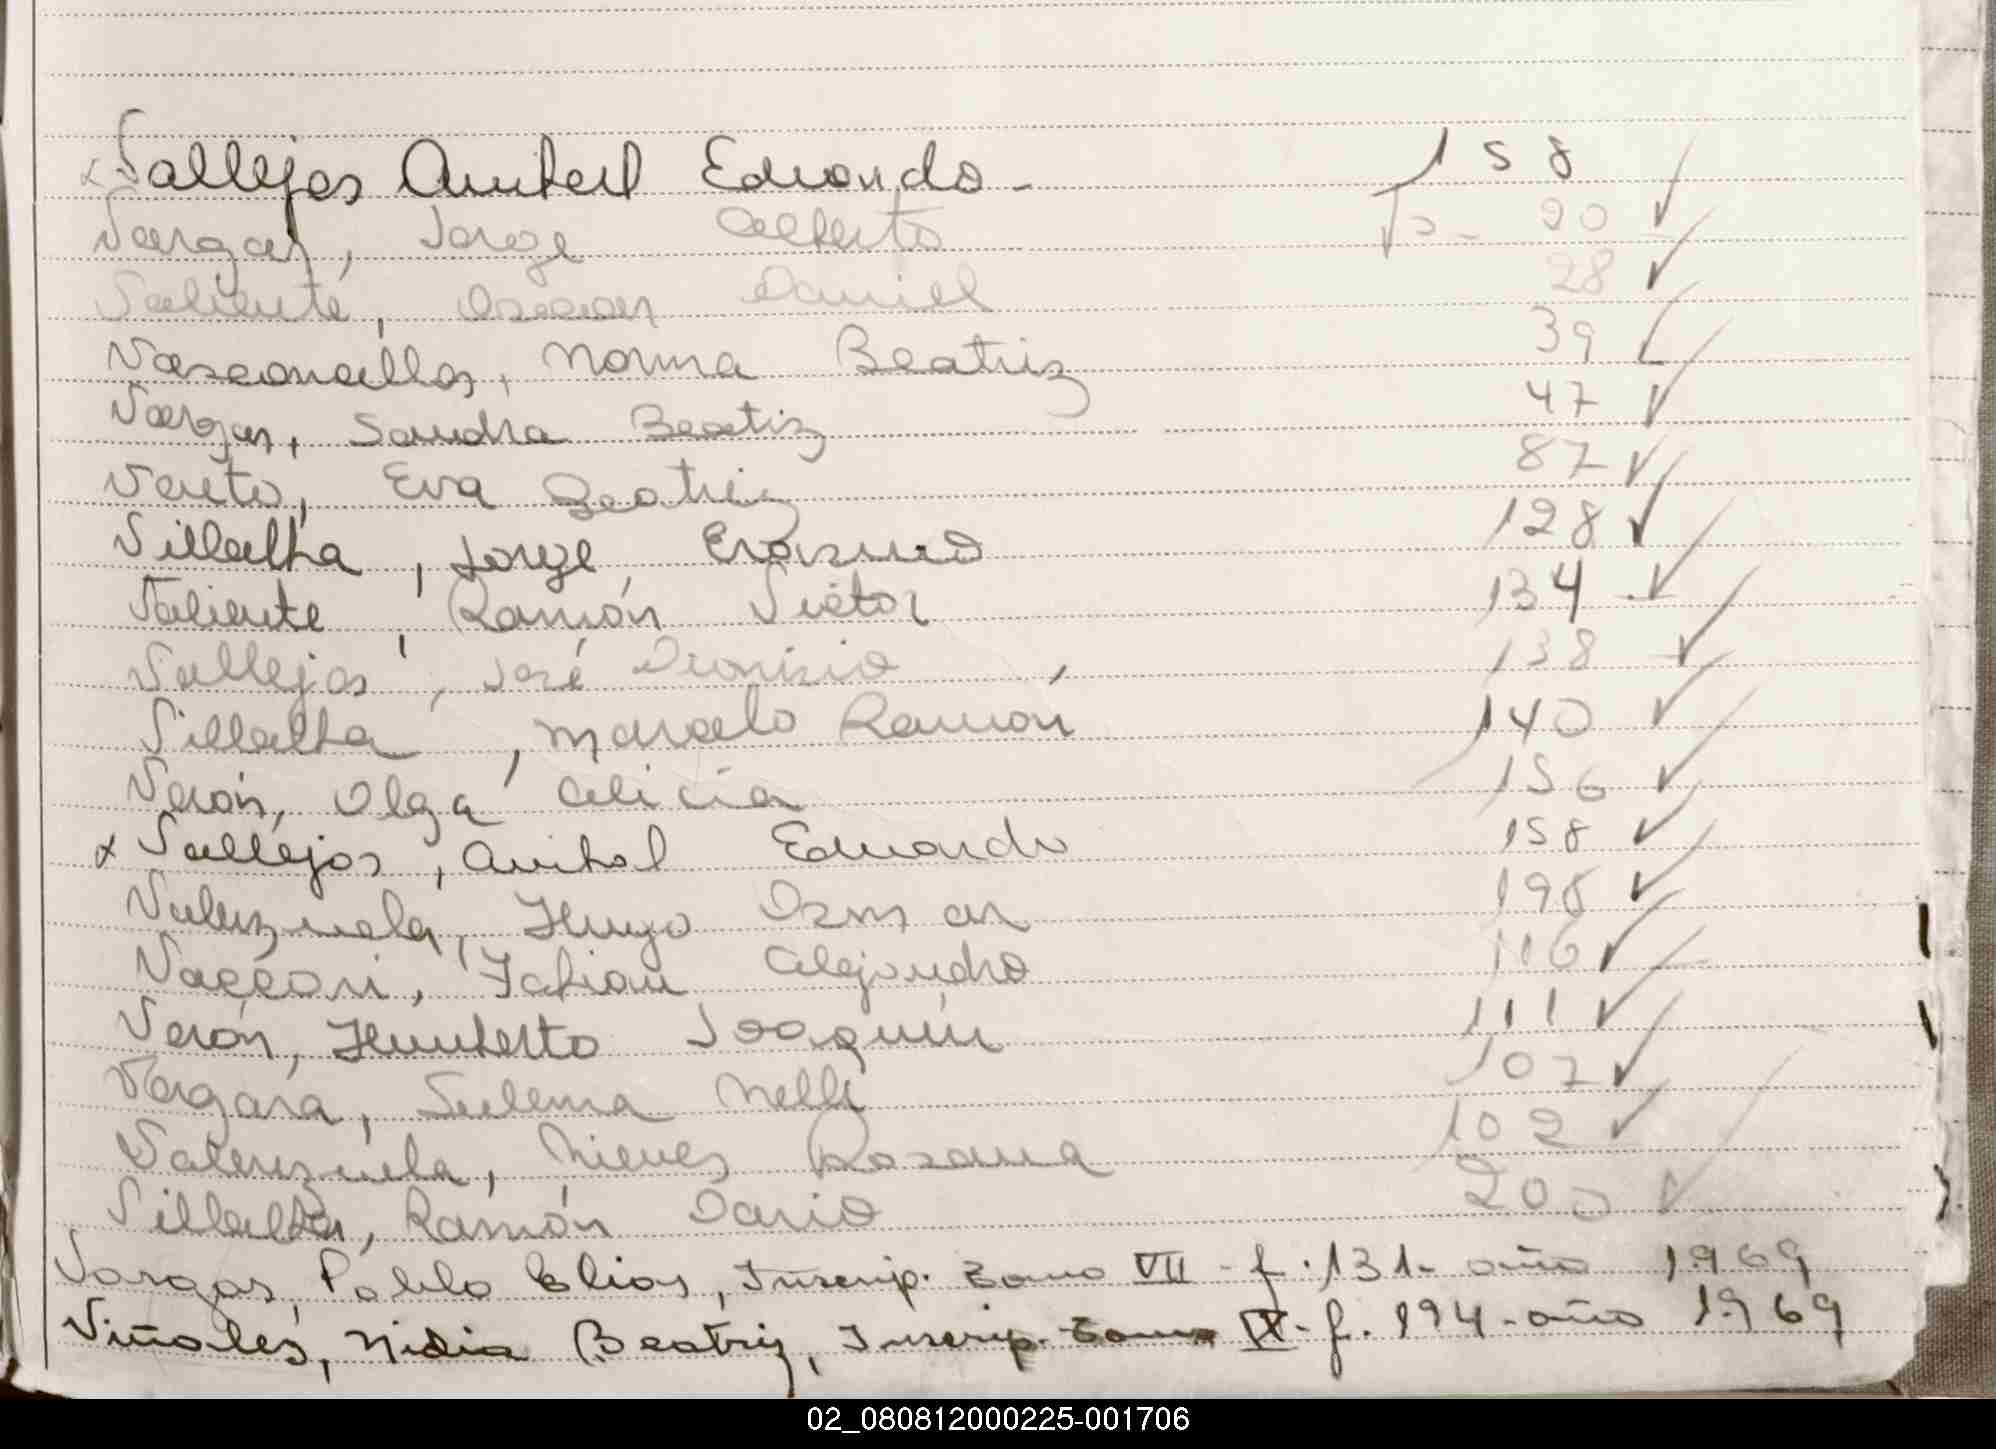 x Vallejos Anibal Eduardo - 158
Vargas, Jorge Alberto Fo - 20 ✓
Valiente, Oscar Daniel 28 ✓
Vasconcellos, Norma Beatriz 39 ✓
Vargas, Sandra Beatriz 47 ✓
Vento, Eva Beatriz 87 ✓
Villalba, Jorge Erasmo 128 ✓
Valiente, Ramón Victor 134 ✓
Vallejos, José Dionisio 138 ✓
Villalba, Marcelo Ramón 140 ✓
Verón, Olga Alicia 156 ✓
x Vallejos, Anibal Eduardo 158 ✓
Valenzuela, Hugo Osmar 198 ✓
Vaccari, Fabian Alejandro 116 ✓
Verón, Humberto Joaquín 111 ✓
Vergara, Sulema Nelli 107 ✓
Valenzuela, Nieves Rosana 102 ✓
Villalba, Ramón Dario 200 ✓
Vargas, Pablo Elias, Inscrip. Tomo VII - f. 131 - año 1969
Viñales, Nidia Beatriz, Inscrip. Tomo IX - f. 194 - año 1969
02_080812000225-001706